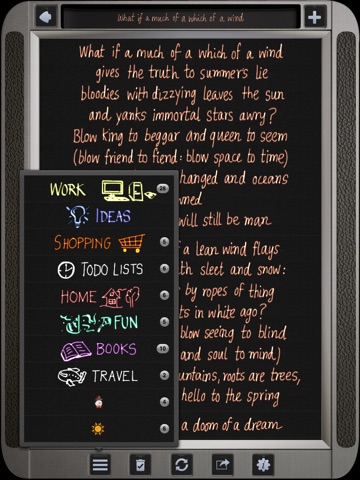 What if a much of a which of a wind
What if a much of a which of a wind
gives the truth to summer's lie
bloodies with dizzying leaves the sun
and yanks immortal stars awry?
Blow king to beggar and queen to seem
(blow friend to fiend: blow space to time)
hanged and oceans
wned
will still be man
f a lean wind flays
th sleet and snow:
by ropes of thing
ts in white ago?
blow seeing to blind
and soul to mind)
untains, roots are trees,
hello to the spring
a doom of a dream
WORK 28
IDEAS
SHOPPING
TODO LISTS
HOME
FUN
BOOKS 10
TRAVEL